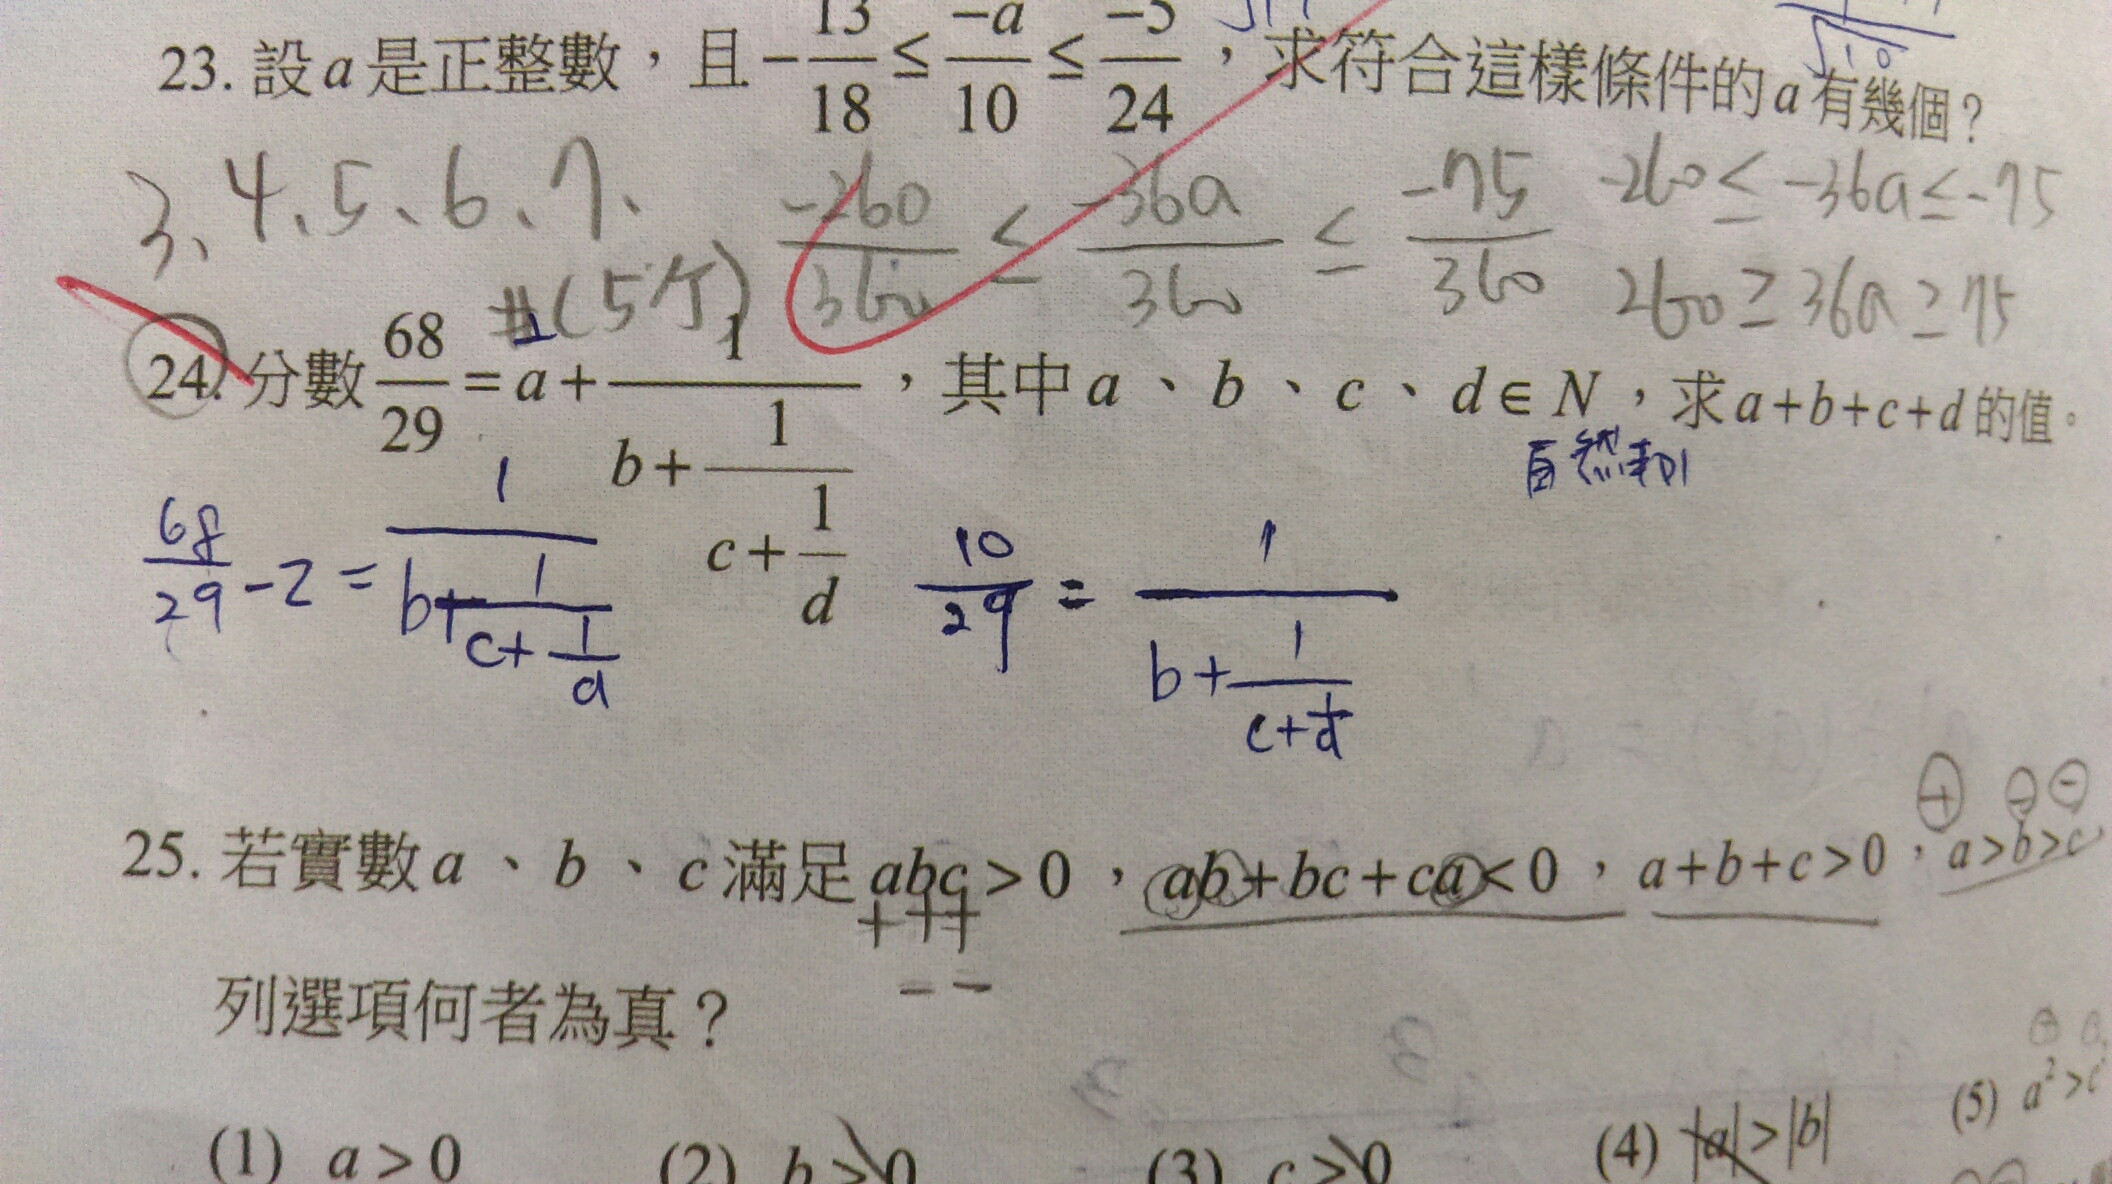 23. 設a是正整數，且-13/18 ≤ -a/10 ≤ -5/24，求符合這樣條件的a有幾個？
3、4、5、6、7、 -260/360 ≤ -36a/360 ≤ -75/360 -260 ≤ -36a ≤ -75
#(5个) 260 ≥ 36a ≥ 75
24. 分數68/29 = a + 1/(b + 1/(c + 1/d))，其中a、b、c、d∈N，求a+b+c+d的值。
自然數
68/29 - 2 = 1/(b + 1/(c + 1/d)) 10/29 = 1/(b + 1/(c + 1/d))
⊕ ⊖ ⊖
25. 若實數a、b、c滿足abc>0，ab+bc+ca<0，a+b+c>0，a>b>c
+ + +
- -
列選項何者為真？
(1) a>0 (2) b>0 (3) c>0 (4) |a|>|b| (5) a²>c